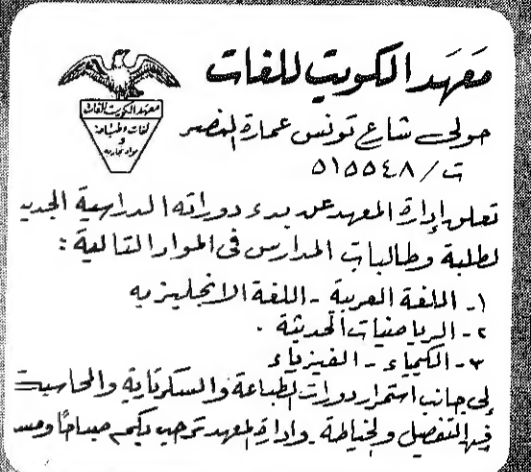 معهد الكويت للغات
معهد الكويت للغات
لغات وطباعة
و
مواد تجارية
حولى شارع تونس عمارة النصر
ت/ ٥١٥٥٤٨
تعلن إدارة المعهد عن بدء دوراته الدراسية الجديد
لطلبة وطالبات المدارس فى المواد التالية :
١- اللغة العربية - اللغة الانجليزيه
٢- الرياضيات الحديثة .
٣- الكيمياء - الفيزياء
إلى جانب استمرار دورات الطباعة والسكرتارية والمحاسبة
فن التفصيل والخياطة . وادارة المعهد ترحب بكم صباحًا ومسـ